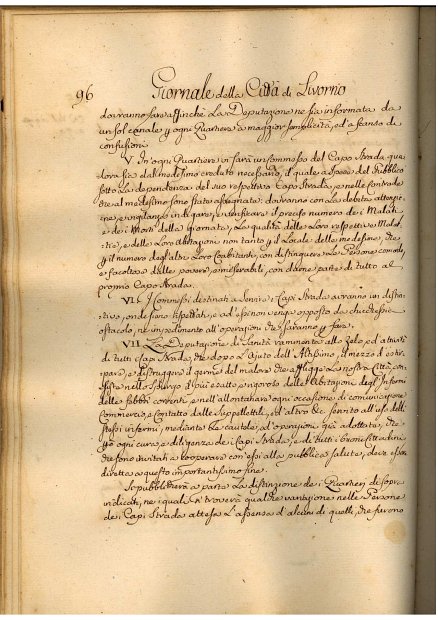 96 Giornale della Città di Livorno
dovranno fare affinchè La Deputazione ne sia informata da
un sol canale p ogni Quartiere a maggior semplicità, ed a scanso di
confusioni.
V. In ogni Quartiere vi sarà un Commesso del Capo Strada qua-
lora sia dal medesimo creduto necessario, il quale a spese del Pubblico
sotto la dependenza del suo respettivo Capo Strada, e nelle contrade
che al medesimo sono state assegnate: dovranno con la debita attenzio-
ne, e vigilanza indagare, e verificare il preciso numero de i Malati
e de i Morti della giornata, La qualità delle Loro respettive Malat-
tie, e delle Loro abitazioni non tanto p il Locale delle medesime, che
p il numero degl'altri Loro Coabitanti, con distinguere Le Persone comode,
e facoltose dalle povere, e miserabili, con darne parte di tutto al
proprio Capo Strada.
VI. I Commessi destinati a servire i Capi Strada avranno un distin-
tivo, onde sieno rispettati, e ad essi non venga opposto da chicchesia
ostacolo, nè impedimento all'operazioni che saranno p fare.
VII. La Deputazione di Sanità rammenta allo Zelo, ed attività
di tutti i Capi Strada, che dopo L'Ajuto dell'Altissimo, il mezzo d'estir-
pare, e distruggere il germe del malore che affligge La nostra Città, con-
siste nello Spurgo il più esatto, e rigoroso delle Abitazioni degl'Infermi
delle febbri correnti, e nell'allontanare ogni occasione di comunicazione
Commercio e Contatto dalle Suppellettili, ed altro &c. servito all'uso delli
stessi infermi, mediante Le cautele, ed operazioni già adottate, che
p ciò ogni cura, e diligenza de i Capi Strada, e di tutti i buoni Cittadini
che sono invitati a cooperare con essi alla pubblica salute, deve esser
diretta a questo importantissimo fine.
Si pubblicherà a parte La distinzione de i Quartieri di sopra
indicati, ne i quali si troverà qualche variazione nelle Persone
de i Capi Strada attesa L'assenza d'alcuni di quelli, che furono